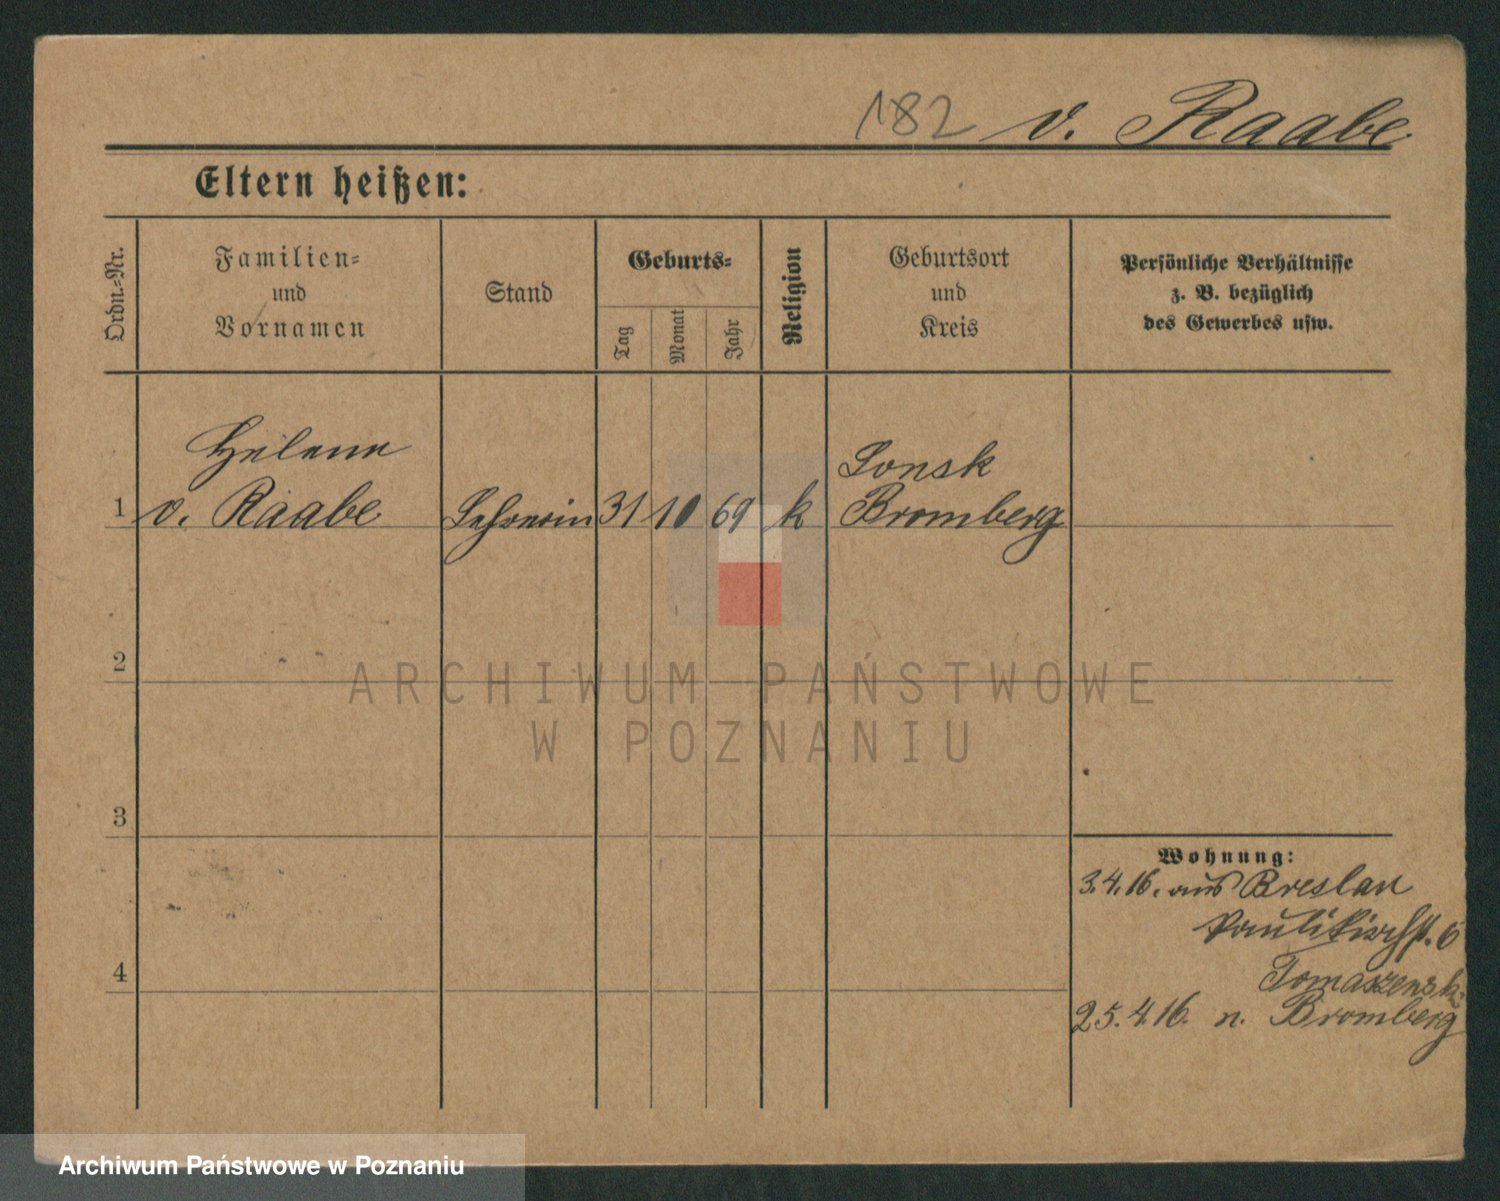 182 v. Raabe
Eltern heißen:
Ordn.-Nr.
Familien-
und
Vornamen
Stand
Geburts-
Tag
Monat
Jahr
Religion
Geburtsort
und
Kreis
Persönliche Verhältnisse
z. B. bezüglich
des Gewerbes usw.
Helene
1 v. Raabe
31 10 69 k
Lonsk
Bromberg
2
3
4
Wohnung:
3.4.16. aus Breslau
Paulikirchst. 6
Tomaszewski
25.4.16. n. Bromberg
ARCHIWUM PAŃSTWOWE
W POZNANIU
Archiwum Państwowe w Poznaniu